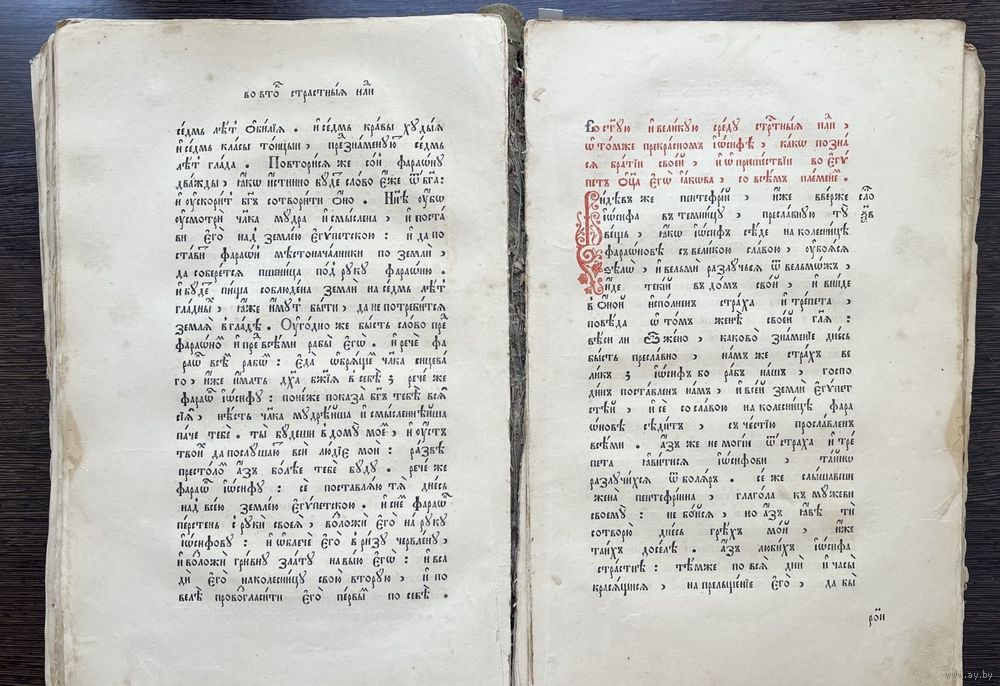 во вто҃к страстныѧ нл҃и
се́дмь лѣ́т ѻ҆би́лїѧ . и҆ се́дмь кра́вы ху́дыѧ
и҆ се́дмь кла́сы то́нцыи , пре҃знаменую се́дмь
лѣ́т гла́да . Повтори́сѧ же со́н фараѡ́ну
два́жды , ꙗ҆́кѡ и҆́стинно бу́де сло́во є҆́же ѿ бг҃а :
и҆ ѹ҆скори́т бг҃ъ сотвори́ти ѻ҆́но . Нн҃ѣ ѹ҆́бѡ
ѹ҆смотрѝ чл҃ка му́дра и҆ смы́слена , и҆ поста́
ви є҆го̀ над̾ земле́ю є҆гѵ́петскою : и҆ да по
ста́ви фараѡ́н мѣстонача́лники по землѝ ,
да собере́тсѧ пшени́ца под̾ ру́ку фараѡ́ню .
и҆ бу́де пи́ща соблюде́на землѝ на се́дмь лѣ́т
гла́дны , ꙗ҆̀же и҆́мут бы́ти , да не потреби́тсѧ
землѧ̀ в гла́дѣ . Оу҆го́дно же бы́сть сло́во пре҃
фараѡ́но и҆ пре҃ всѣ́ми рабы̀ є҆гѡ̀ . и҆ речѐ фа
раѡ́н всѣ̑ рабѡ́ : є҆да̀ ѡ҆брѧ́ще чл҃ка сицева́
го , и҆́же и҆́мать дх҃а бж҃їѧ в себѣ̀ ; рече́ же
фараѡ́н і҆ѡ́сифу : поне́же показа̀ бг҃ъ тебѣ̀ всѧ̑
сїѧ̑ , нѣ́сть чл҃ка мудрѣ́йша и҆ смы́сленнѣйша
па́че тебє̀ . ты̀ бу́деши в дому̀ мое́ , и҆ ѹ҆́ст
твои́ да послу́шаю всѝ лю́дїе мои̑ : ра́звѣ
престо́ло а҆́зъ бо́лѣе тебє̀ бу́ду . рече́ же
фараѡ́н і҆ѡ́сифу : сѐ поставлѧ́ю тѧ̀ дне́сь
над̾ все́ю земле́ю є҆гѵ́петскою . и҆ сне́ фараѡ́н
пе́рстень с ру́ки своеѧ̀ , возложѝ є҆го̀ на ру́ку
і҆ѡ́сифову : и҆ ѡ҆блечѐ є҆го̀ в ри́зу черв́лену ,
и҆ возложѝ гри́вну зла́ту на вы́ю є҆гѡ̀ : и҆ вса
дѝ є҆го̀ на колесни́цу свою̀ втору́ю , и҆ по
велѣ̀ провозгласи́ти є҆го̀ пе́рвы по себѣ̀ .
Во ст҃у́ю и҆ вели́кую сре́ду стр҃тны́ѧ нл҃и ,
ѡ҆ то́мже прекра́сном і҆ѡ́сифѣ , ка́кѡ позна́
сѧ бра́тїи свое́й , и҆ ѡ҆ прише́ствїи во є҆гѵ́
пет ѻ҆ц҃а̀ є҆гѡ̀ і҆а́кѡва , со всѣ́мъ пле́мене .
Ви́дѣвъ же пентефрі́й , и҆́же вве́рже сло҃
і҆ѡ́сифа в темни́цу , пресла́вную ту̀
ве́щь , ꙗ҆́кѡ і҆ѡ́сиф сѣ́де на колесни́це
фараѡ́новѣ с вели́кою сла́вою , ѹ҆боѧ́сѧ
ѕѣлѡ̀ , и҆ вельмѝ разлучьсѧ ѿ вельмо́жъ ,
и҆́де теки́й в до́мъ сво́й , и҆ вни́де
в ѻ҆́ной и҆спо́лнен стра́ха и҆ тре́пета ,
повѣ́да ѡ҆ то́м женѣ̀ свое́й гл҃ѧ :
вѣ́си ли ѽ же́но , каково̀ зна́менїе дне́сь
бы́сть пресла́вно , на́мъ же стра́хъ ве
ли́къ ; і҆ѡ́сифъ бо ра́бъ на́шъ , госпо
ди́нъ поста́вленъ на́мъ , и҆ все́й землѝ є҆гѵ́пет
стѣ́й , и҆ сѐ со сла́вою на колесни́цѣ фара
ѡ́новѣ сѣди́тъ , с че́стїю просла́вленъ
всѣ́ми . а҆́зъ же не могі́й ѿ стра́ха и҆ тре́
пета ꙗ҆ви́тисѧ і҆ѡ́сифови , та́йнѡ
разлучи́хсѧ ѿ болѧ́р . се́ же слы́шавши
жена̀ пентефри́нна , глаго́ла къ му́жеви
своему̀ : не бо́йсѧ , но а҆́зъ ꙗ҆́вѣ тѝ
сотворю̀ дне́сь грѣ́хъ мо́й , и҆́же
таи́хъ досе́лѣ . а҆́зъ люби́хъ і҆ѡ́сифа
стра́стнѣ : тѣ́мже по всѧ̑ дни̑ и҆ часы̀
красѧ́щисѧ , на прельще́нїе є҆гѡ̀ , да бы
рон
www.ay.by